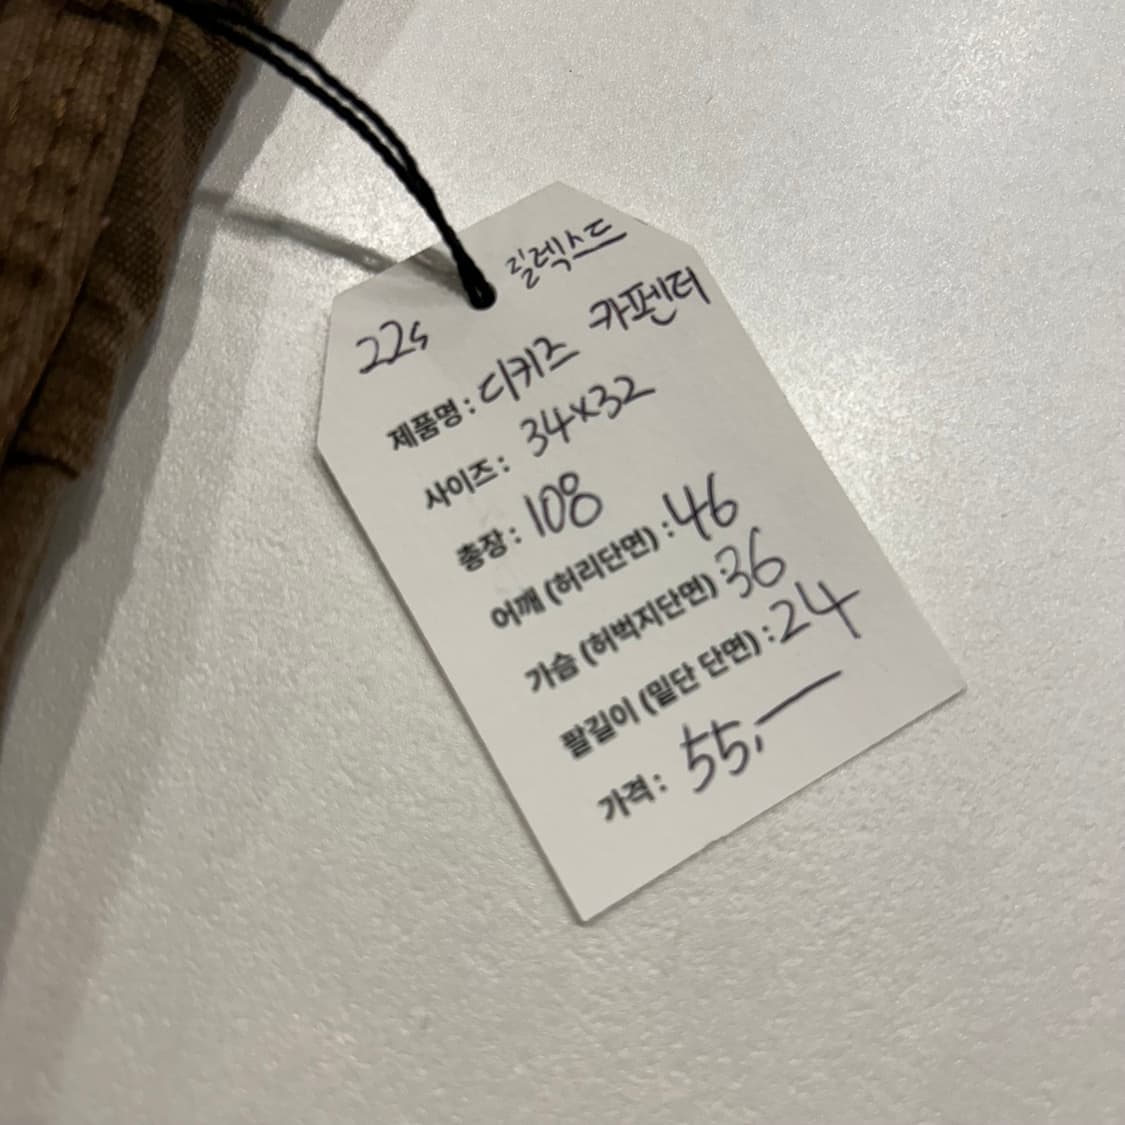 릴렉스드
22s
제품명 : 디키즈 카펜터
사이즈 : 34x32
총장 : 108
어깨 (허리단면) : 46
가슴 (허벅지단면) : 36
팔길이 (밑단 단면) : 24
가격 : 55,—